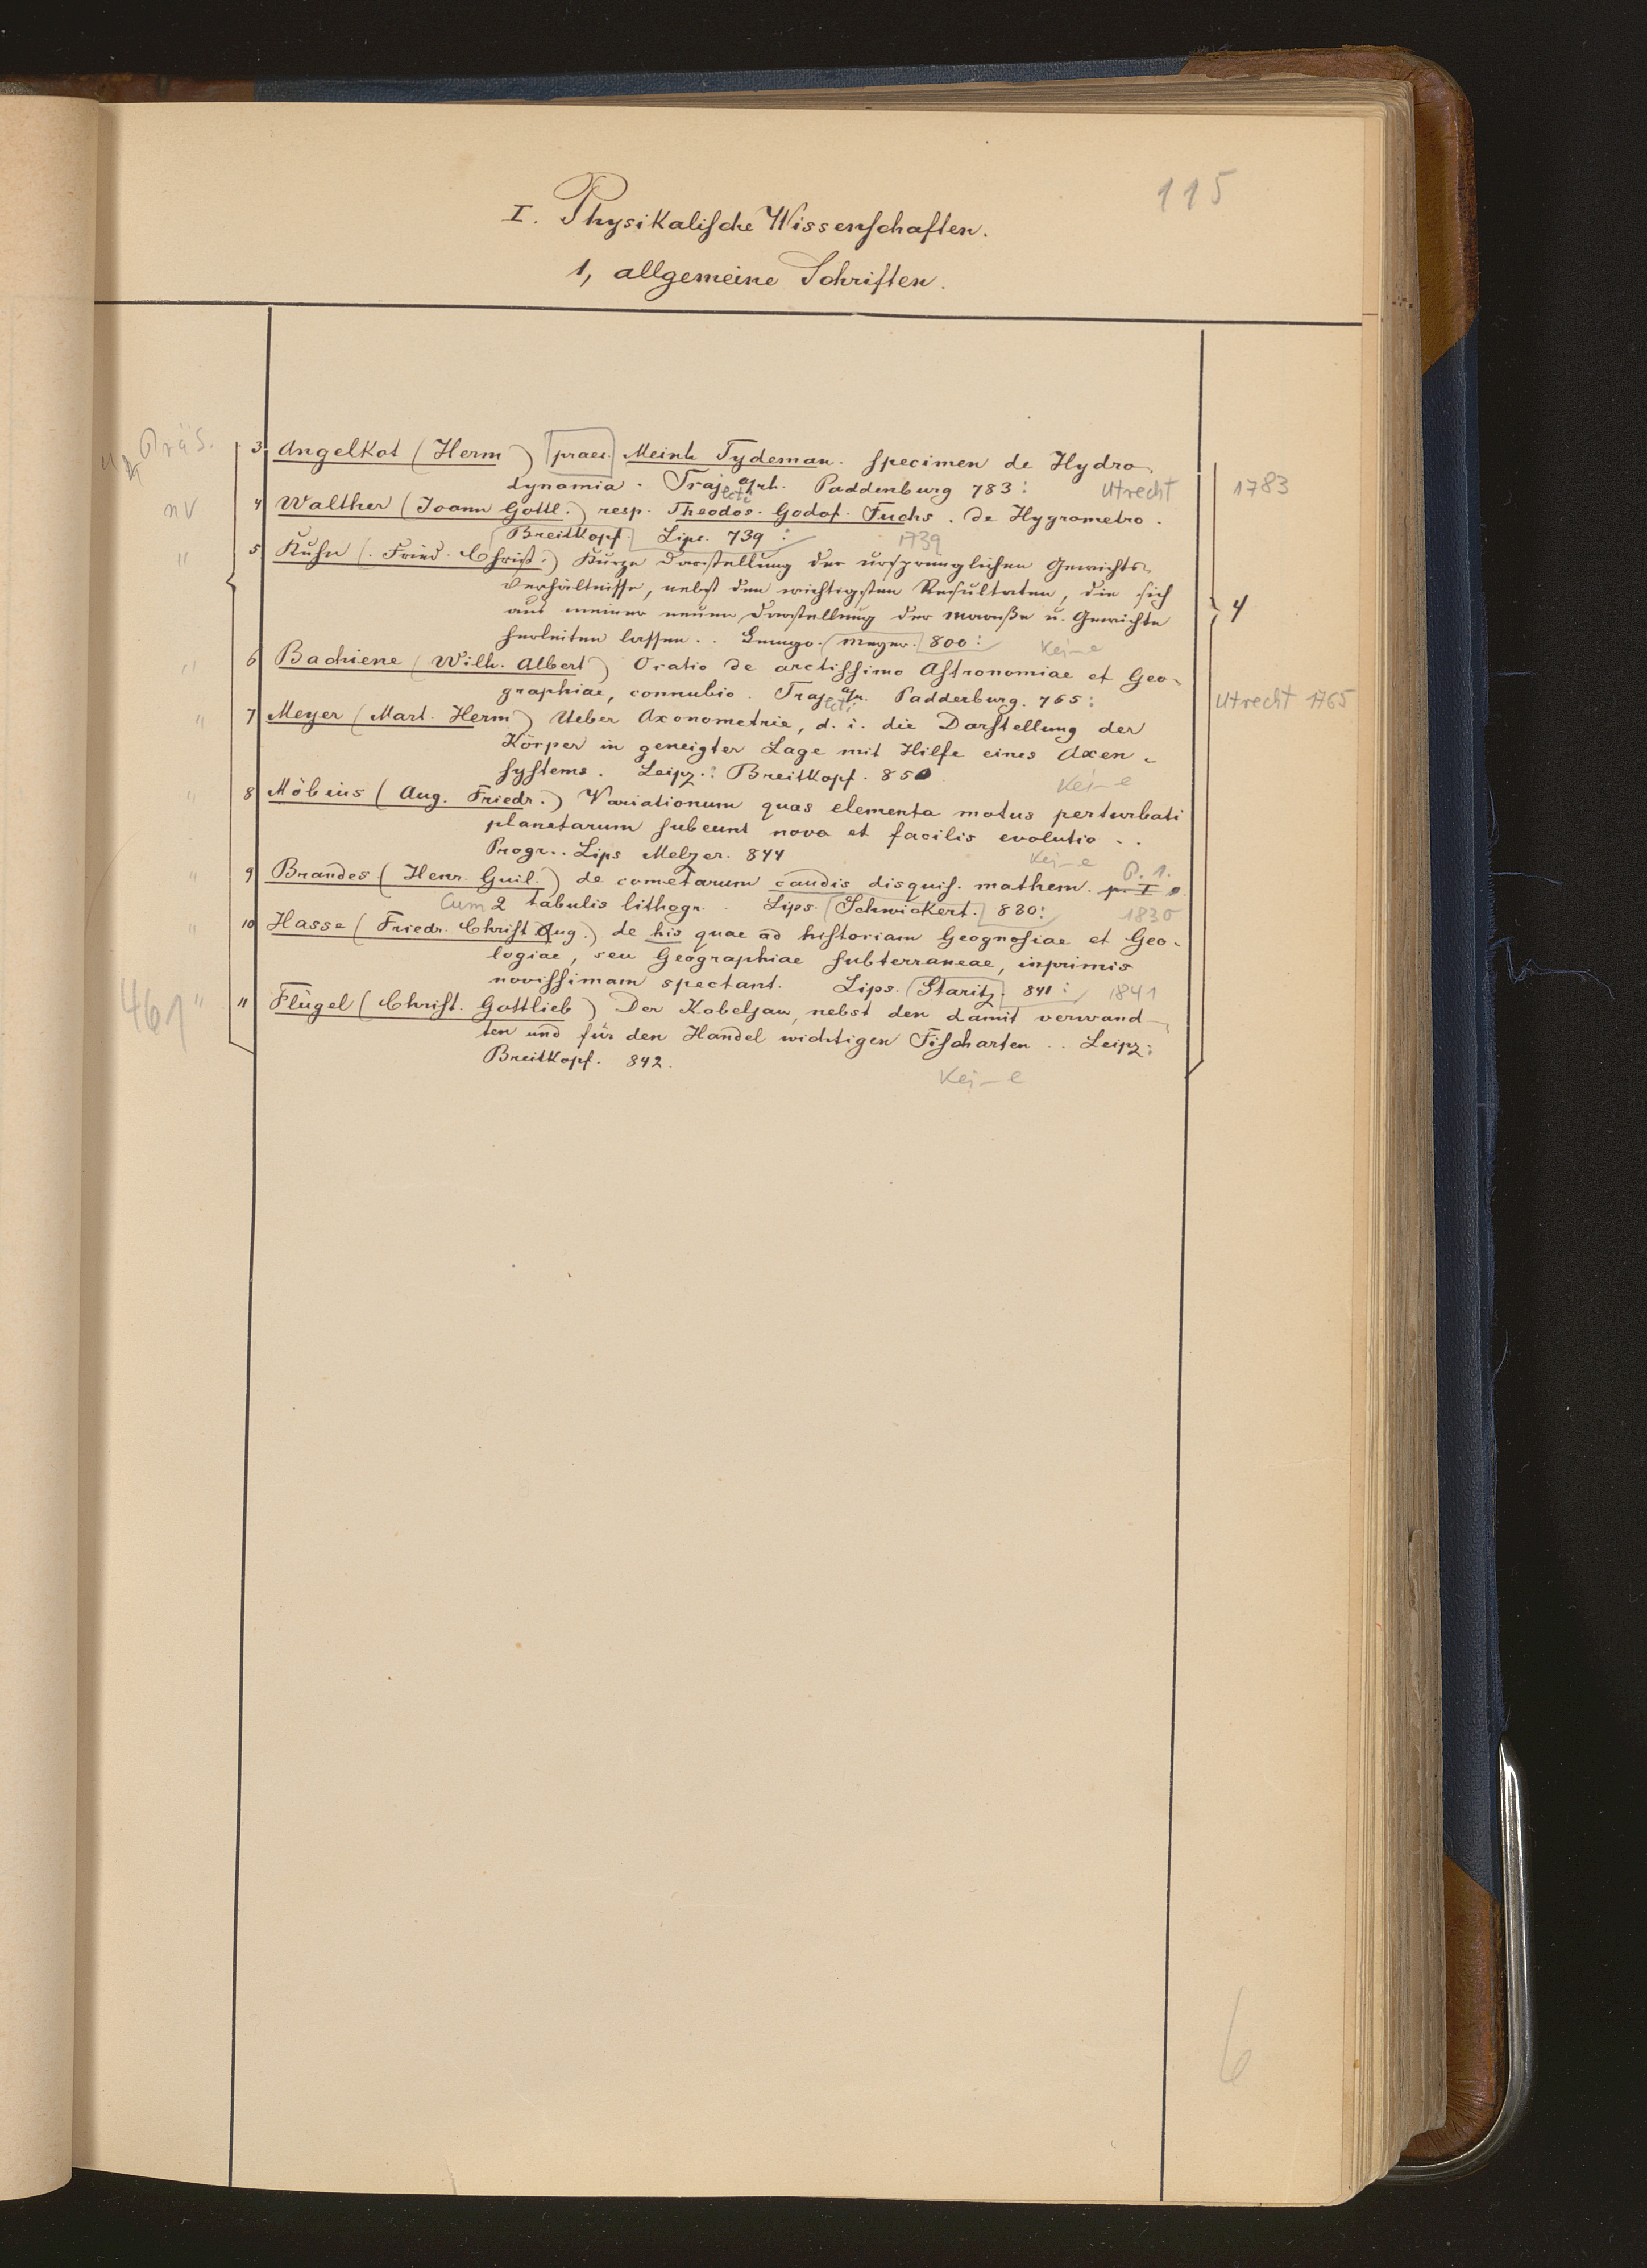 115
I. Physikalische Wissenschaften.
1, allgemeine Schriften.
Präs.
3 Angelkot (Herm) praes. Meinh Tydeman. Specimen de Hydro-
dynamia. Trajecti a/rh. Paddenburg 783: Utrecht 1783
nv 4 Walther (Joann Gottl.) resp. Theodos. Godof. Fuchs. de Hygrometro.
Breitkopf. Lips. 739: 1739
" 5 Kühn (Fried. Christ.) Kurze Darstellung der ursprünglichen Gewichts-
Verhältnisse, nebst den wichtigsten Resultaten, die sich
aus meiner neuen Darstellung der Maaße u. Gewichte 4
herleiten lassen.. Lemgo. Meyer. 800: Kei-e
" 6 Bachiene (Wilh. Albert) Oratio de arctissimo Astronomiae et Geo-
graphiae, connubio. Trajecti a/r. Padderburg. 765: Utrecht 1765
" 7 Meyer (Mart. Herm) Ueber Axonometrie, d. i. die Darstellung der
Körper in geneigter Lage mit Hilfe eines Axen-
systems. Leipz.: Breitkopf. 850 Kei-e
" 8 Möbius (Aug. Friedr.) Variationum quas elementa motus perturbati
planetarum subeunt nova et facilis evolutio..
Progr.. Lips Melzer. 844 Kei-e
" 9 Brandes (Henr. Guil.) de cometarum caudis disquis. mathem. p. I P. 1.
Cum 2 tabulis lithogr. Lips. Schwickert. 830: 1830
" 10 Hasse (Friedr. Christ Aug.) de his quae ad historiam Geognosiae et Geo-
logiae, seu Geographiae subterraneae, inprimis
novissimam spectant. Lips. Staritz. 841: 1841
461 " 11 Flügel (Christ. Gottlieb) Der Kabeljau, nebst den damit verwand-
ten und für den Handel wichtigen Fischarten.. Leipz:
Breitkopf. 842.
Kei-e
6